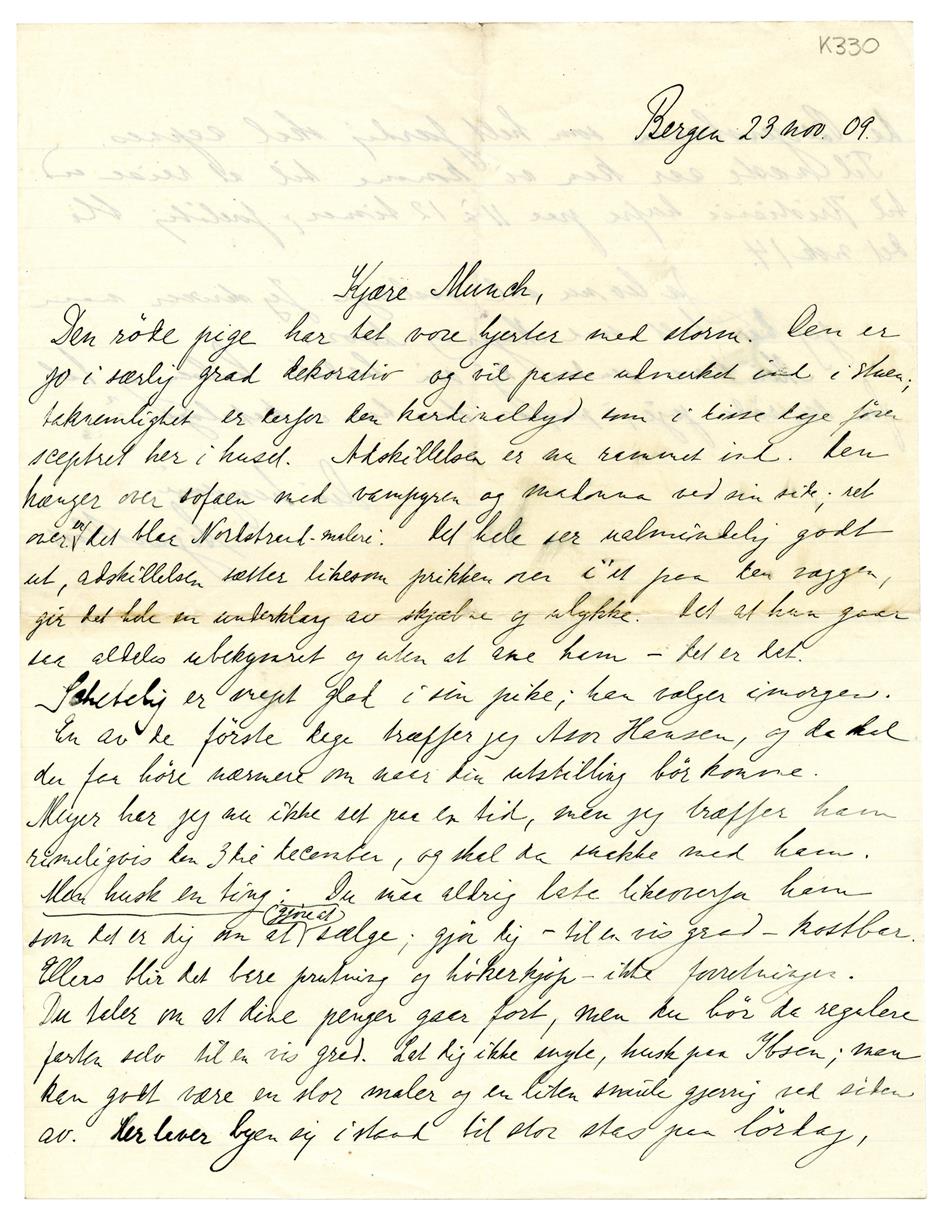 K330
Bergen 23 nov. 09.
Kjære Munch,
Den røde pige har tat vore hjerter med storm. Den er
jo i særlig grad dekorativ og vil passe udmerket ind i stuen;
taknemlighet er derfor den kardinaldyd som i disse dage fører
sceptret her i huset. Adskillelsen er nu rammet ind. Den
hænger over sofaen med vampyren og madonna ved sin side; ret
over er det blaa Nordstrand-maleri. Det hele ser ualmindelig godt
ut, adskillelsen sætter likesom prikken over i'et paa den væggen,
gir det hele en underklang av skjæbne og ulykke. Det at hun gaar
saa aldeles ubekymret og uten at ane ham – det er det.
Schetelig er meget glad i sin pike; han vælger imorgen.
En av de første dage træffer jeg Asor Hansen, og da skal
du faa høre nærmere om naar din utstilling bør komme.
Meyer har jeg nu ikke set paa en tid, men jeg træffer ham
rimeligvis den 3die december, og skal da snakke med ham.
Men husk en ting: Du maa aldrig late likeoverfor ham
som det er dig om at gjøre at sælge; gjør dig – til en vis grad – kostbar.
Ellers blir det bare prutning og høkerkjøp – ikke forretninger.
Du taler om at dine penger gaar fort, men du bør da regulere
farten selv til en vis grad. Lat dig ikke snyte, husk paa Ibsen; man
kan godt være en stor maler og en liten smule gjerrig ved siden
av. Her laver byen sig istand til stor stas paa lørdag,